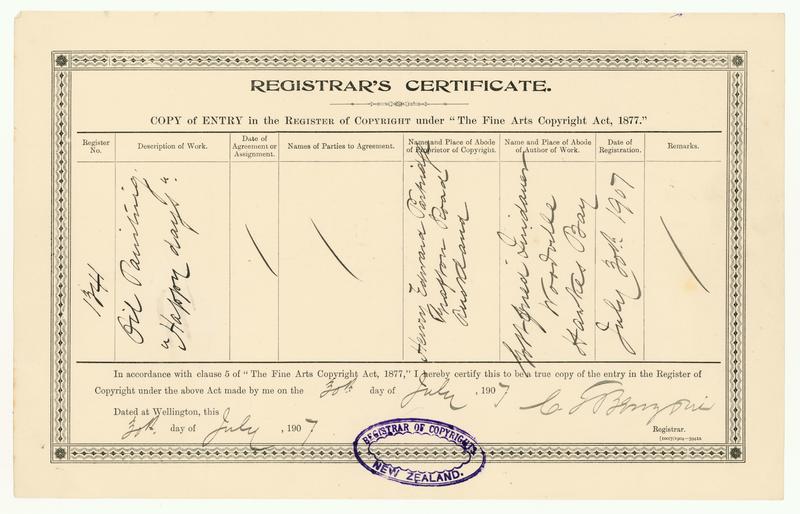 REGISTRAR'S CERTIFICATE.
COPY of ENTRY in the REGISTER of COPYRIGHT under "The Fine Arts Copyright Act, 1877."
Register No.
Description of Work.
Date of Agreement or Assignment.
Names of Parties to Agreement.
Name and Place of Abode of Proprietor of Copyright.
Name and Place of Abode of Author of Work.
Date of Registration.
Remarks.
Oil Painting.
"Happy days".
Henry Edward Partridge
Grafton Road
Auckland
Gottfried Lindauer
Woodville
Hawkes Bay
July 30th 1907
In accordance with clause 5 of "The Fine Arts Copyright Act, 1877," I hereby certify this to be a true copy of the entry in the Register of
Copyright under the above Act made by me on the 30th day of July, 1907
Dated at Wellington, this
30th day of July, 1907
Registrar.
REGISTRAR OF COPYRIGHTS
NEW ZEALAND.